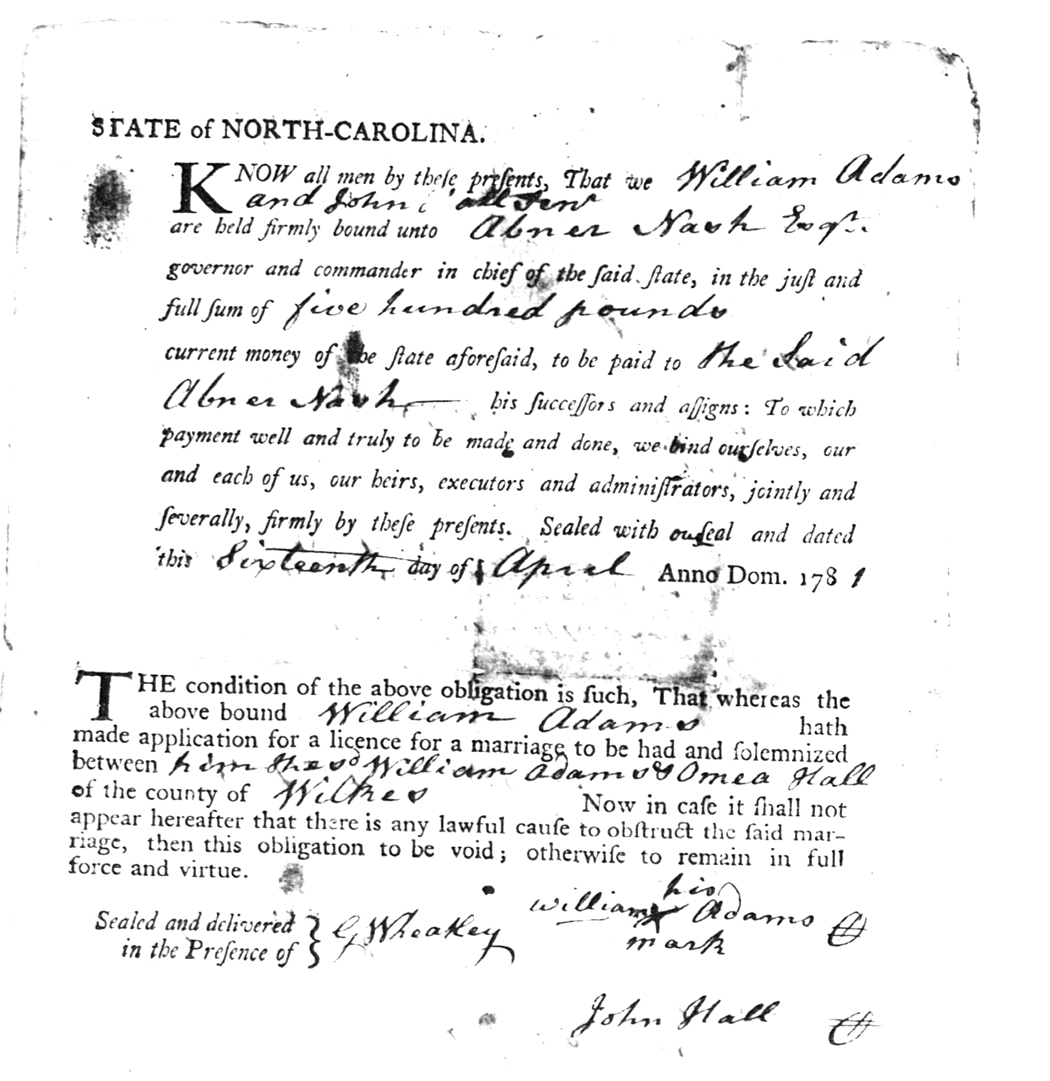 STATE of NORTH-CAROLINA.
KNOW all men by theſe preſents, That we William Adams
and John
are held firmly bound unto Abner Nash Esqr.
governor and commander in chief of the ſaid ſtate, in the juſt and
full ſum of five hundred pounds
current money of the ſtate aforeſaid, to be paid to the Said
Abner Nash his ſucceſſors and aſſigns: To which
payment well and truly to be made and done, we bind ourſelves, our
and each of us, our heirs, executors and adminiſtrators, jointly and
ſeverally, firmly by theſe preſents. Sealed with our ſeal and dated
this Sixteenth day of April Anno Dom. 1781
THE condition of the above obligation is ſuch, That whereas the
above bound William Adams hath
made application for a licence for a marriage to be had and ſolemnized
between him the sd William Adams & Omea Hall
of the county of Wilkes Now in caſe it ſhall not
appear hereafter that there is any lawful cauſe to obſtruct the ſaid mar-
riage, then this obligation to be void; otherwiſe to remain in full
force and virtue.
his
Sealed and delivered William X Adams
in the Preſence of G Wheatley mark
John Hall